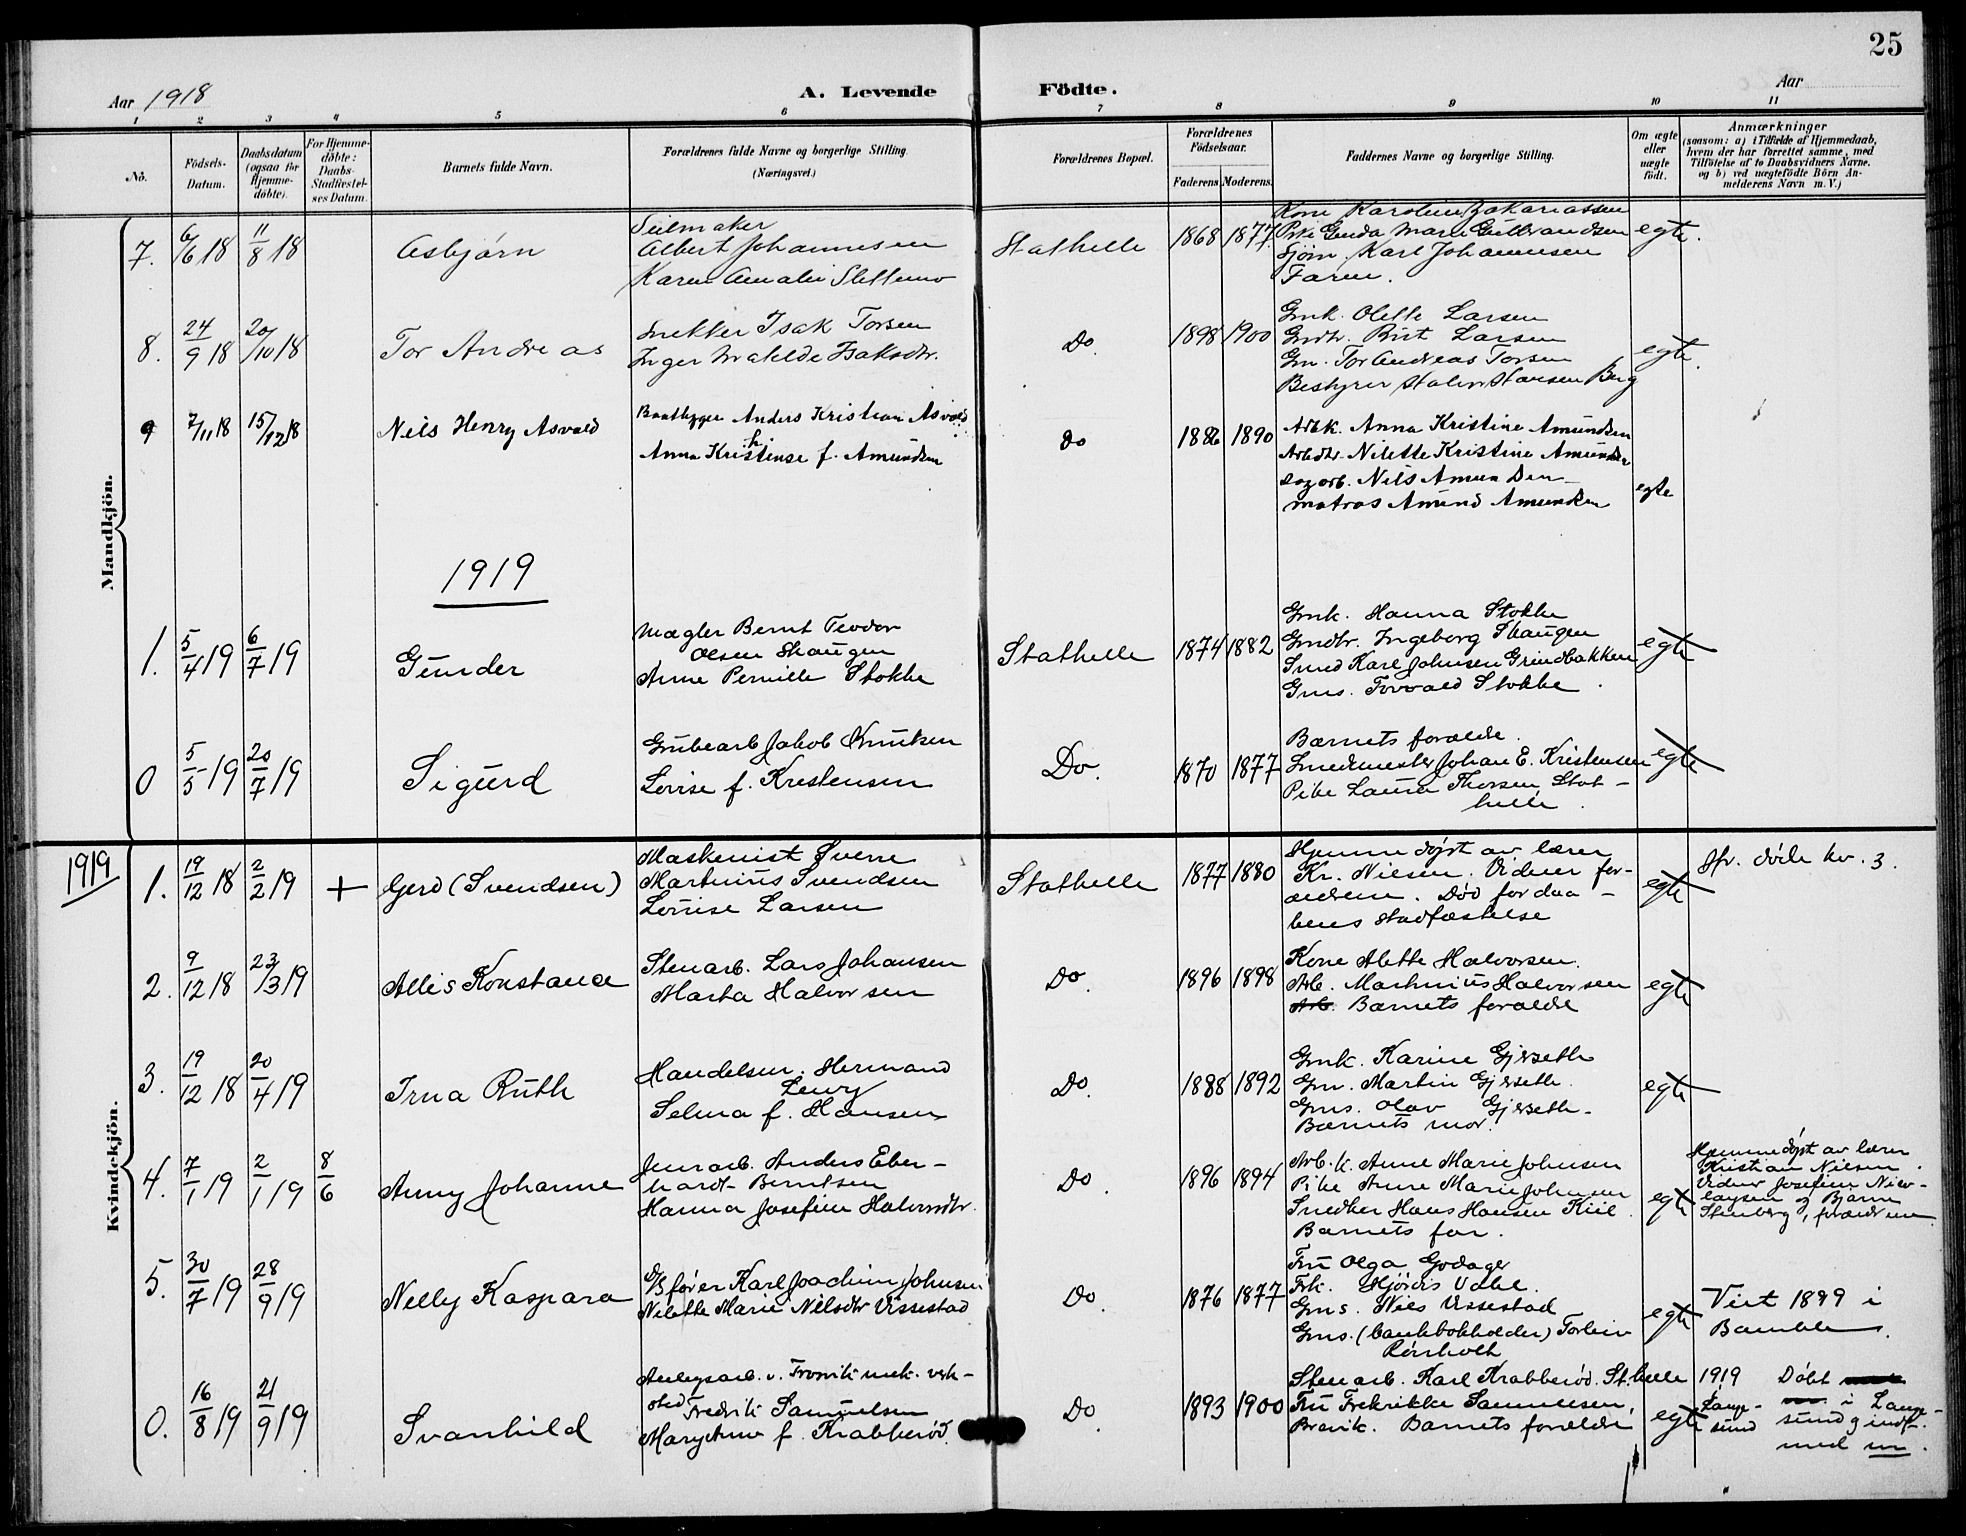 25
Aar 1918
A. Levende
Födte.
Aar
1 2 3 4 5 6 7 8 9 10 11
No.
Födsels-Datum.
Daabsdatum (ogsaa for Hjemme-döbte).
For Hjemme-döbte: Daabs-Stadfæstel-ses Datum.
Barnets fulde Navn.
Forældrenes fulde Navne og borgerlige Stilling. (Næringsvei.)
Forældrenes Bopæl.
Forældrenes Födselsaar.
Faderens. Moderens.
Faddernes Navne og borgerlige Stilling.
Om ægte eller uægte födt.
Anmærkninger
(saasom: a) i Tilfælde af Hjemmedaab,
hvem der har forrettet samme, med
Tilföielse af to Daabsvidners Navne.
og b) ved uægtefödte Börn An-
melderens Navn m. V.)
Mandkjön.
7. 6/6 18 11/8 18 Asbjørn
Seilmaker
Albert Johannesen
Karen Amalie
Stathelle 1868 1877
Kone Karoline Zakariassen
Pike Gunda Marie Gulbrandsen
Sjöm. Karl Johannesen
Faren.
egte.
8. 24/9 18 20/10 18 Tor Andreas
Snekker Isak Torsen
Inger Matilde Isaksdtr.
Do. 1898 1900
Gmk. Olette Larsen
Gmdtr. Birit Larsen
Gm. Tor Andreas Torsen
Bestyrer Hansen Berg
egte.
9 7/11 18 15/12 18 Nils Henry Asvald
Baatbygger Anders Kristian Asvald
Anna Kristense f. Amundsen
do 1886 1890
Arbk. Anna Kristine Amundsen
Arbdtr. Nilette Kristine Amundsen
Sagarb. Nils Amundsen
matros Amund Amundsen
egte
1919
1. 5/4 19 6/7 19 Gunder
Mægler Bernt Teodor
Olsen Skaugen
Anne Pernille Stokke
Stathelle 1874 1882
Gmk. Hanna Stokke
Gmdtr. Ingeborg Skaugen
Smed Karl Johnsen Grindbakken
Gms. Torvald Stokke.
egte
0 5/5 19 20/7 19 Sigurd
Grubearb. Jakob Knutsen
Lovise f. Kristensen
Do. 1870 1877
Barnets forældre.
Smedmester Johan E. Kristensen
Pike Laura Thorsen, Stat-
helle.
egte
1919
Kvindekjön.
1. 19/12 18 2/2 19 + Gerd (Svendsen)
Maskenist Sverre
Martinius Svendsen
Lovise Larsen
Stathelle 1877 1880
Hjemmedøpt av lærer
Kr. Nilsen. Vidner for-
ældrene. Død før daa-
bens stadfæstelse
egte
Jfr. døde kv. 3.
2. 9/12 18 23/3 19 Allis Konstance
Stenarb. Lars Johansen
Marta Halvorsen
Do. 1896 1898
Kone Alette Halvorsen.
Arb. Martinius Halvorsen
Arb. Barnets forældre
egte
3. 19/12 18 20/4 19 Irna Ruth
Handelsm. Hermand
Levy
Selma f. Hansen
Do. 1888 1892
Gmk. Karine Gjerseth
Gm. Martin Gjerseth.
Gms. Olav Gjerseth.
Barnets mor.
egte
4. 7/1 19 2/1 19 8/6 Anny Johanne
Jernarb. Anders Eber-
hardt Berntsen
Hanna Josefine Halvorsdtr.
Do. 1896 1894
Arb.k. Anne Marie Johnsen
Pike Anne Marie Johnsen
Snedker Hans Hansen Kiil.
Barnets far.
egte
Hjemmedøpt av lærer
Kristian Nilsen.
Vidner Josefine Nico-
laysen og Bjarne
Stenberg, forældrene
5. 30/7 19 28/9 19 Nelly Kaspara
D/S fører Karl Joachim Johnsen
Nilette Marie Nilsdtr Vissestad
Do. 1876 1877
Fru Olga Godager
Frk. Hjørdis
Gms. Niels Vissestad
Gms. (bankbokholder) Torleiv
Rønholt
egte
Viet 1899 i
Bamble.
0. 16/8 19 21/9 19 Svanhild
Anlegsarb. v. Trosvik mek. verk-
sted Fredrik Samuelsen
Mary Anne f. Krabberød.
Do. 1893 1900
Stenarb. Karl Krabberød. St.helle
Fru Fredrikke Samuelsen,
Brevik. Barnets forældre
egte
1919
Lange-
sund
Døbt
i Lange-
sund g indf.
med